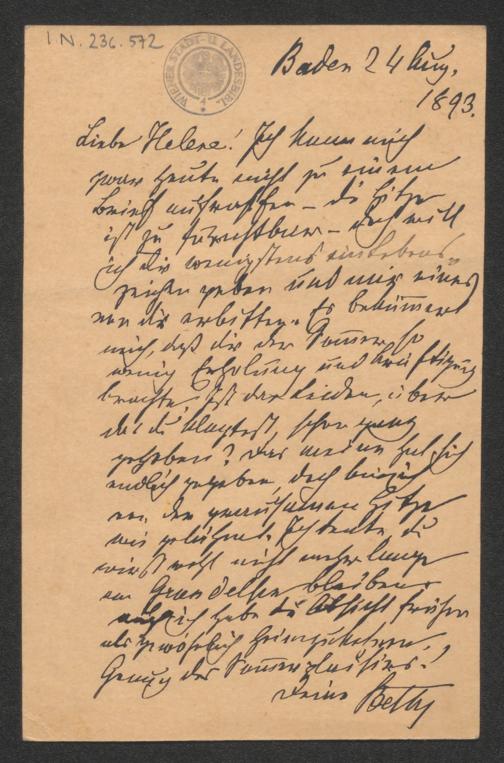 I.N. 236.572
WIENER STADT-U. LANDESBIBL.
Baden 24 Aug.
1893.
Liebe Helene! Ich kann mich
zwar heute nicht zu einem
Brief aufraffen – die Hitze
ist zu furchtbar – doch will
ich dir wenigstens ein Lebens-
zeichen geben und mir eines
von dir erbitten. Es bekümmert
mich, daß dir der Sommer so
wenig Erholung und Kräftigung
brachte. Ist das Leiden, über
das du klagtest, schon ganz
gehoben? Das meine hat sich
endlich gegeben, doch bin ich
von der grausamen Hitze
wie gelähmt. Ich denke, du
wirst wohl nicht mehr lange
am Grundelsee bleiben
auch ich habe die Absicht früher
als gewöhnlich heimzukehren.
Genug des Sommerplaisirs!
Deine Betty